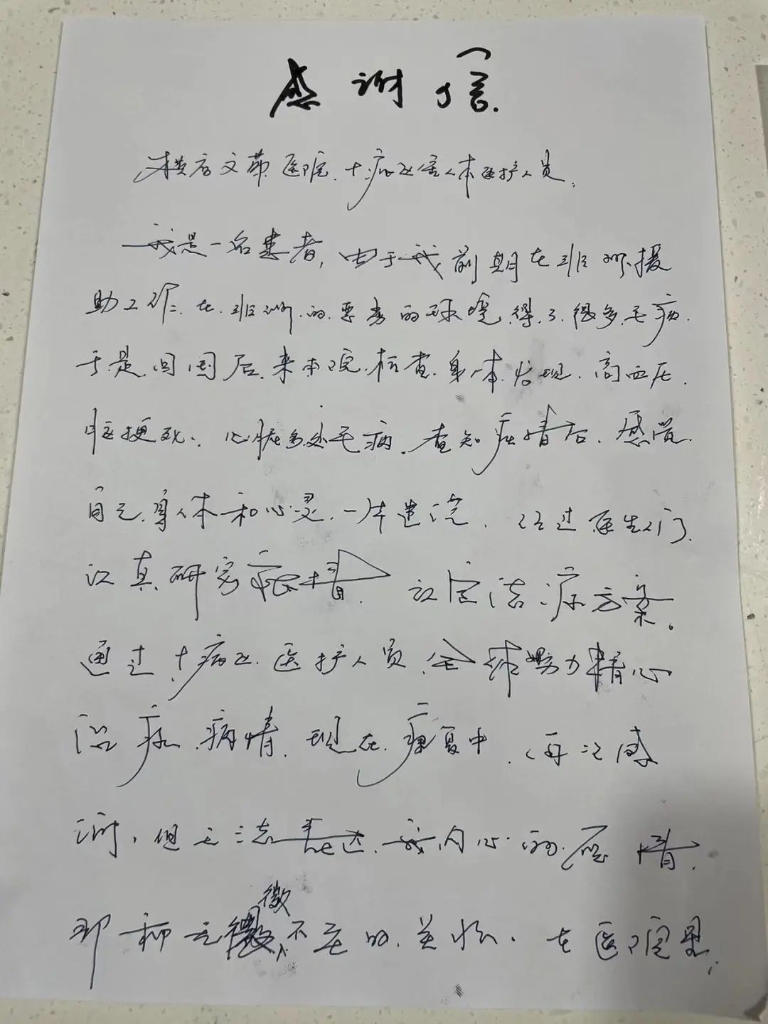 感谢信
横店文荣医院十病区全体医护人员
我是一名患者,由于我前期在非洲援
助工作,在非洲的恶劣的环境得了很多毛病
于是回国后来本院检查身体发现高血压
脑梗死、心脏多处毛病,查知病情后,感觉
自己身体和心灵一片迷茫,经过医生们
认真研究病情,设定治疗方案。
通过十病区医护人员全体努力精心
治疗,病情现在康复中,再次感
谢,但无法表达我内心的感情,
那种无微不至的关怀,在医院里,